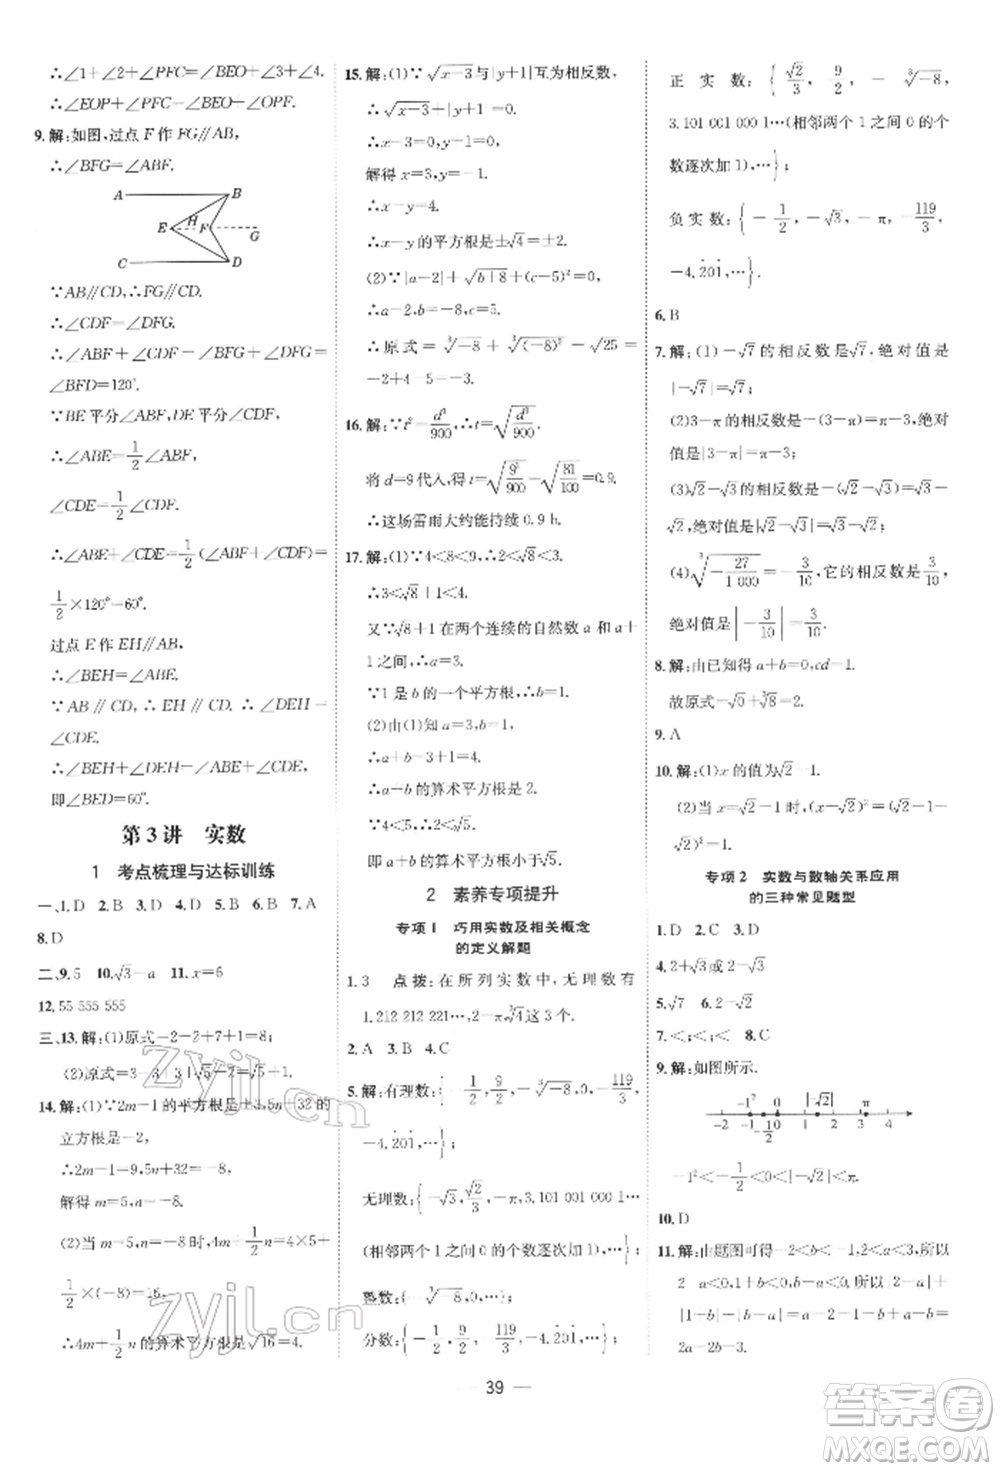 ∴∠1+∠2+∠PFC=∠BEO+∠3+∠4.
∴∠EOP+∠PFC=∠BEO+∠OPF.
9.解:如图,过点 F 作 FG∥AB,
∴∠BFG=∠ABF.
A B
E H F G
C D
∵AB∥CD,∴FG∥CD.
∴∠CDF=∠DFG.
∴∠ABF+∠CDF=∠BFG+∠DFG=
∠BFD=120°.
∵BE平分∠ABF,DE平分∠CDF,
∴∠ABE=1/2∠ABF,
∠CDE=1/2∠CDF.
∴∠ABE+∠CDE=1/2(∠ABF+∠CDF)=
1/2×120°=60°.
过点 E 作 EH∥AB.
∴∠BEH=∠ABE.
∵AB∥CD,∴EH∥CD.∴∠DEH=
∠CDE.
∴∠BEH+∠DEH=∠ABE+∠CDE,
即∠BED=60°.
第3讲 实数
1 考点梳理与达标训练
一、1.D 2.B 3.D 4.D 5.B 6.B 7.A
8.D
二、9.5 10.√3-a 11.x=6
12.55 555 555
三、13.解:(1)原式=2-2+7+1=8;
14.解:(1)∵2m-1的平方根是±3,5n+32的
立方根是-2,
∴2m-1=9,5n+32=-8.
解得 m=5,n=-8.
(2)当 m=5,n=-8时,4m+1/2n=4×5+
1/2×(-8)=16,
∴4m+1/2n的算术平方根是√16=4.
15.解:(1)∵√(x-3)与|y+1|互为相反数,
∴√(x-3)+|y+1|=0.
∴x-3=0,y+1=0.
解得 x=3,y=-1.
∴x-y=4.
∴x-y的平方根是±√4=±2.
(2)∵|a-2|+√(b+8)+(c-5)²=0,
∴a=2,b=-8,c=5.
∴原式=∛-8+∛(-8)²-√25=
-2+4-5=-3.
16.解:∵t²=d³/900,∴t=√(d³/900).
将 d=9代入,得 t=√(9³/900)=√(81/100)=0.9.
∴这场雷雨大约能持续 0.9 h.
17.解:(1)∵4<8<9,∴2<√8<3.
∴3<√8+1<4.
又∵√8+1在两个连续的自然数 a 和 a+
1之间,∴a=3.
∵1是 b 的一个平方根,∴b=1.
(2)由(1)知 a=3,b=1.
∴a+b=3+1=4.
∴a+b的算术平方根是2.
∵4<5,∴2<√5.
即 a+b的算术平方根小于√5.
2 素养专项提升
专项1 巧用实数及相关概念
的定义解题
1.3 点拨:在所列实数中,无理数有
2.A 3.B 4.C
5.解:有理数:{-1/2,9/2,-∛-8,-119/3,
-4.2̇01̇,⋯};
无理数:{-√3,√2/3,-π,3.101 001 000 1⋯
(相邻两个1之间0的个数逐次加1),⋯};
整数:{-∛-8,⋯};
分数:{-1/2,9/2,-119/3,-4.2̇01̇,⋯};
正实数:{√2/3,9/2,-∛-8,
3.101 001 000 1⋯(相邻两个1之间0的个
数逐次加1),⋯};
负实数:{-1/2,-√3,-π,-119/3,
-4.2̇01̇,⋯}.
6.B
7.解:(1)-√7的相反数是√7,绝对值是
|-√7|=√7;
(2)3-π的相反数是-(3-π)=π-3,绝对
值是|3-π|=π-3;
(3)√2-√5的相反数是-(√2-√5)=√5-
√2,绝对值是|√2-√5|=√5-√2;
(4)∛(-27/1 000)=-3/10,它的相反数是3/10,
绝对值是|-3/10|=3/10.
8.解:由已知得 a+b=0,cd=1.
故原式=-√0+∛8=2.
9.A
10.解:(1)x的值为√2-1.
(2)当 x=√2-1时,(x-√2)²=(√2-1-
√2)²=1.
专项2 实数与数轴关系应用
的三种常见题型
1.D 2.C 3.D
4.2+√3或2-√3
5.√7 6.2-√2
7.<;<;< 8.C
9.解:如图所示.
-1² -1/2 0 |-√2| π
-2 -1 0 1 2 3 4
-1²<-1/2<0<|-√2|<π.
10.D
11.解:由题图可得-2<b<-1,2<a<3,所以
2-a<0,1-b>0,a-b>0,所以|2-a|+
|1-b|-|a-b|=a-2+1-b-a+b=
39
Zyjl.cn
Zyjl.cn
答案卷
MXQE.COM